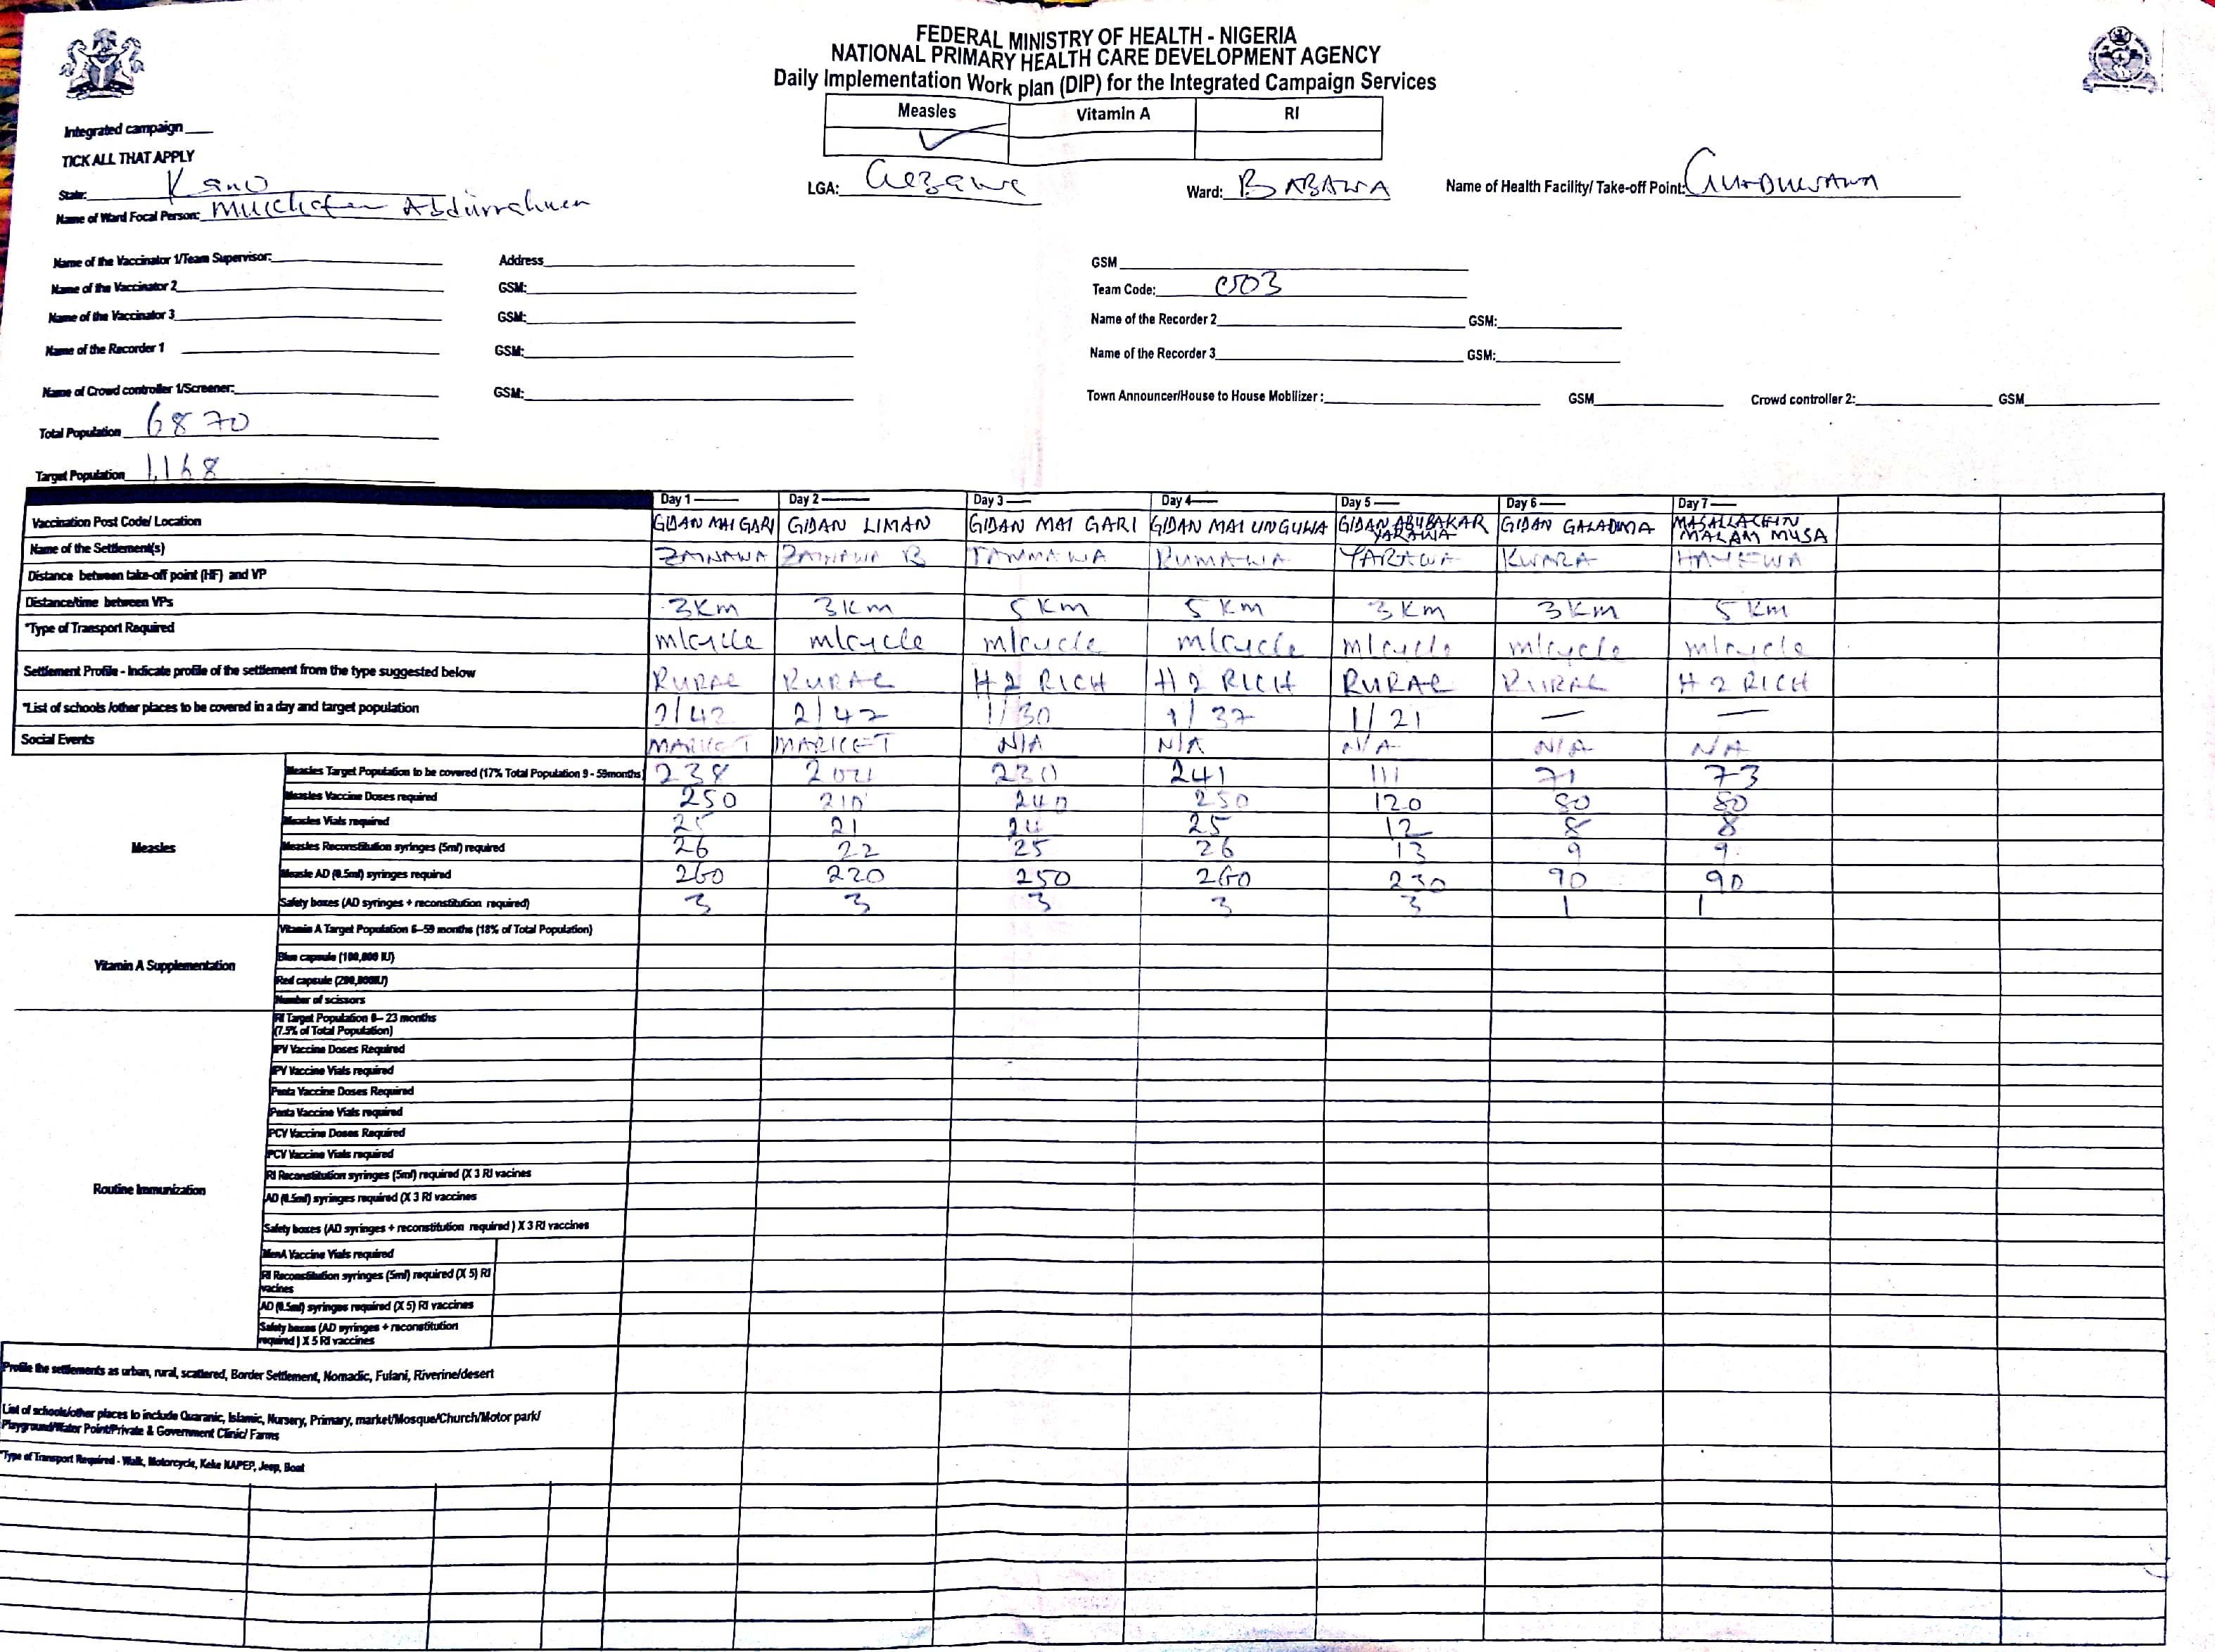 FEDERAL MINISTRY OF HEALTH - NIGERIA
NATIONAL PRIMARY HEALTH CARE DEVELOPMENT AGENCY
Daily Implementation Work plan (DIP) for the Integrated Campaign Services
Measles Vitamin A RI
✓
Integrated campaign
TICK ALL THAT APPLY
State: Kano LGA: Gezawa Ward: BABAWA Name of Health Facility/ Take-off Point:
Name of Ward Focal Person: Abdurrahman
Name of the Vaccinator 1/Team Supervisor: Address GSM
Name of the Vaccinator 2 GSM: Team Code: 003
Name of the Vaccinator 3 GSM: Name of the Recorder 2 GSM:
Name of the Recorder 1 GSM: Name of the Recorder 3 GSM:
Name of Crowd controller 1/Screener: GSM: Town Announcer/House to House Mobilizer : GSM Crowd controller 2: GSM
Total Population 6870
Target Population 1,168
Day 1 Day 2 Day 3 Day 4 Day 5 Day 6 Day 7
Vaccination Post Code/ Location GIDAN MAI GARI GIDAN LIMAN GIDAN MAI GARI GIDAN MAI UNGUWA GIDAN ABUBAKAR YARAWA GIDAN GALADIMA MASALLACHIN MALAM MUSA
Name of the Settlement(s) ZAINAWA ZAINAWA B TANMAWA RUMAWA YARAWA KWARA HAYEWA
Distance between take-off point (HF) and VP
Distance/time between VPs 3Km 3Km 5Km 5Km 3Km 3Km 5Km
*Type of Transport Required m/cycle m/cycle m/cycle m/cycle m/cycle m/cycle m/cycle
Settlement Profile - Indicate profile of the settlement from the type suggested below RURAL RURAL H2RICH H2RICH RURAL RURAL H2RICH
*List of schools /other places to be covered in a day and target population 2/42 2/42 1/30 1/37 1/21 — —
Social Events MARKET MARKET N/A N/A N/A N/A N/A
Measles
Measles Target Population to be covered (17% Total Population 9 - 59months) 238 230 241 111 71 73
Measles Vaccine Doses required 250 210 240 250 120 80 80
Measles Vials required 25 21 24 25 12 8 8
Measles Reconstitution syringes (5ml) required 26 22 25 26 13 9 9
Measle AD (0.5ml) syringes required 260 220 250 260 230 90 90
Safety boxes (AD syringes + reconstitution required) 3 3 3 3 3 1 1
Vitamin A Supplementation
Vitamin A Target Population 6–59 months (18% of Total Population)
Blue capsule (100,000 IU)
Red capsule (200,000IU)
Number of scissors
Routine Immunization
RI Target Population 0– 23 months
(7.5% of Total Population)
IPV Vaccine Doses Required
IPV Vaccine Vials required
Penta Vaccine Doses Required
Penta Vaccine Vials required
PCV Vaccine Doses Required
PCV Vaccine Vials required
RI Reconstitution syringes (5ml) required (X 3 RI vacines
AD (0.5ml) syringes required (X 3 RI vaccines
Safety boxes (AD syringes + reconstitution required ) X 3 RI vaccines
MenA Vaccine Vials required
RI Reconstitution syringes (5ml) required (X 5) RI
vacines
AD (0.5ml) syringes required (X 5) RI vaccines
Safety boxes (AD syringes + reconstitution
required ) X 5 RI vaccines
Profile the settlements as urban, rural, scattered, Border Settlement, Nomadic, Fulani, Riverine/desert
List of schools/other places to include Quaranic, Islamic, Nursery, Primary, market/Mosque/Church/Motor park/
Playground/Water Point/Private & Government Clinic/ Farms
*Type of Transport Required - Walk, Motorcycle, Keke NAPEP, Jeep, Boat